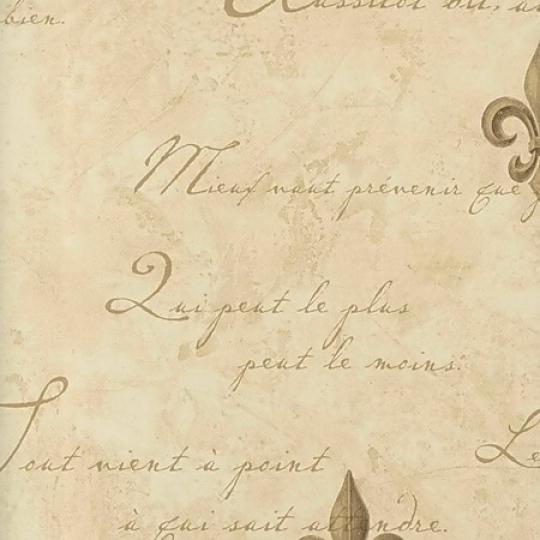 bien.
Mieux vaut prévenir que
Qui peut le plus
peut le moins.
Tout vient à point
à qui sait attendre.